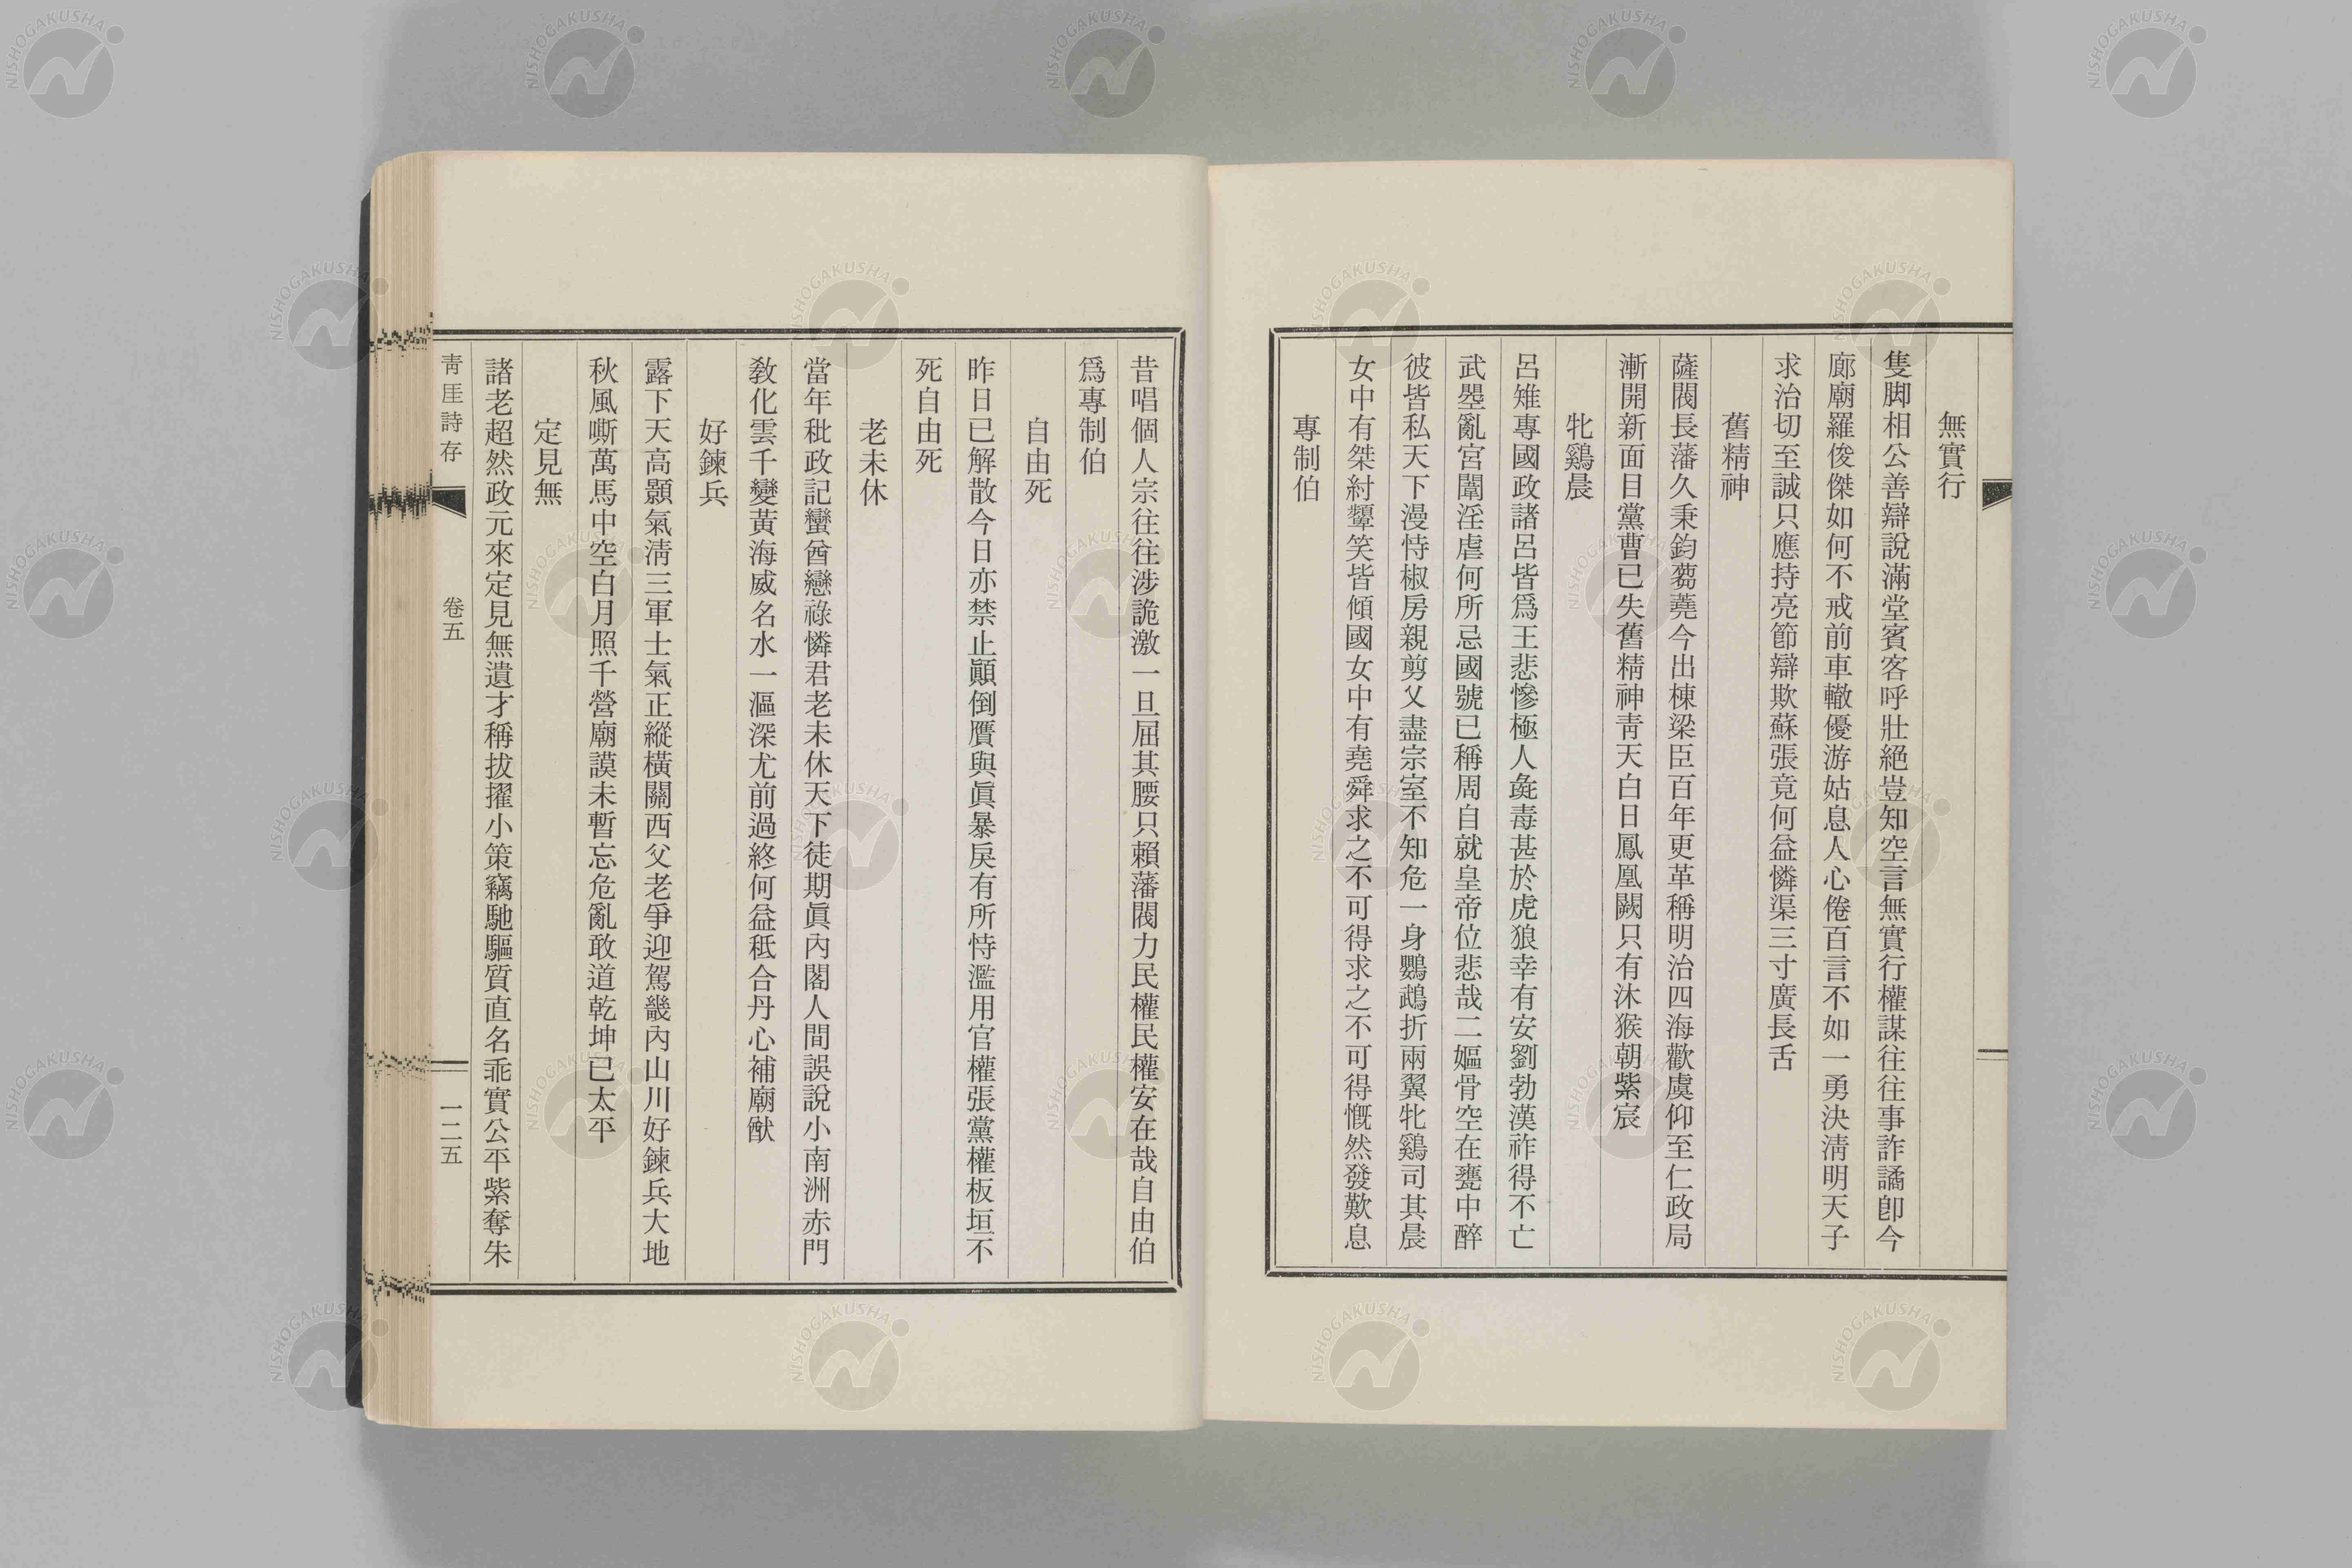 無實行
隻脚相公善辯說滿堂賓客呼壯絕豈知空言無實行權謀往往事詐譎卽今
廊廟羅俊傑如何不戒前車轍優游姑息人心倦百言不如一勇決淸明天子
求治切至誠只應持亮節辯欺蘇張竟何益憐渠三寸廣長舌
舊精神
薩閥長藩久秉鈞蒭蕘今出棟梁臣百年更革稱明治四海歡虞仰至仁政局
漸開新面目黨曹已失舊精神靑天白日鳳凰闕只有沐猴朝紫宸
牝鷄晨
呂雉專國政諸呂皆爲王悲慘極人彘毒甚於虎狼幸有安劉勃漢祚得不亡
武曌亂宮闈淫虐何所忌國號已稱周自就皇帝位悲哉二嫗骨空在甕中醉
彼皆私天下漫恃椒房親剪乂盡宗室不知危一身鸚鵡折兩翼牝鷄司其晨
女中有桀紂顰笑皆傾國女中有堯舜求之不可得求之不可得慨然發歎息
專制伯
昔唱個人宗往往涉詭激一旦屈其腰只賴藩閥力民權民權安在哉自由伯
爲專制伯
自由死
昨日已解散今日亦禁止顚倒贋與眞暴戾有所恃濫用官權張黨權板垣不
死自由死
老未休
當年秕政記蠻酋戀祿憐君老未休天下徒期眞內閣人間誤說小南洲赤門
敎化雲千變黃海威名水一漚深尤前過終何益秪合丹心補廟猷
好鍊兵
露下天高顥氣淸三軍士氣正縱橫關西父老爭迎駕畿內山川好鍊兵大地
秋風嘶萬馬中空白月照千營廟謨未暫忘危亂敢道乾坤已太平
定見無
諸老超然政元來定見無遺才稱拔擢小策竊馳驅質直名乖實公平紫奪朱
靑厓詩存
卷五
一二五
NISHOGAKUSHA